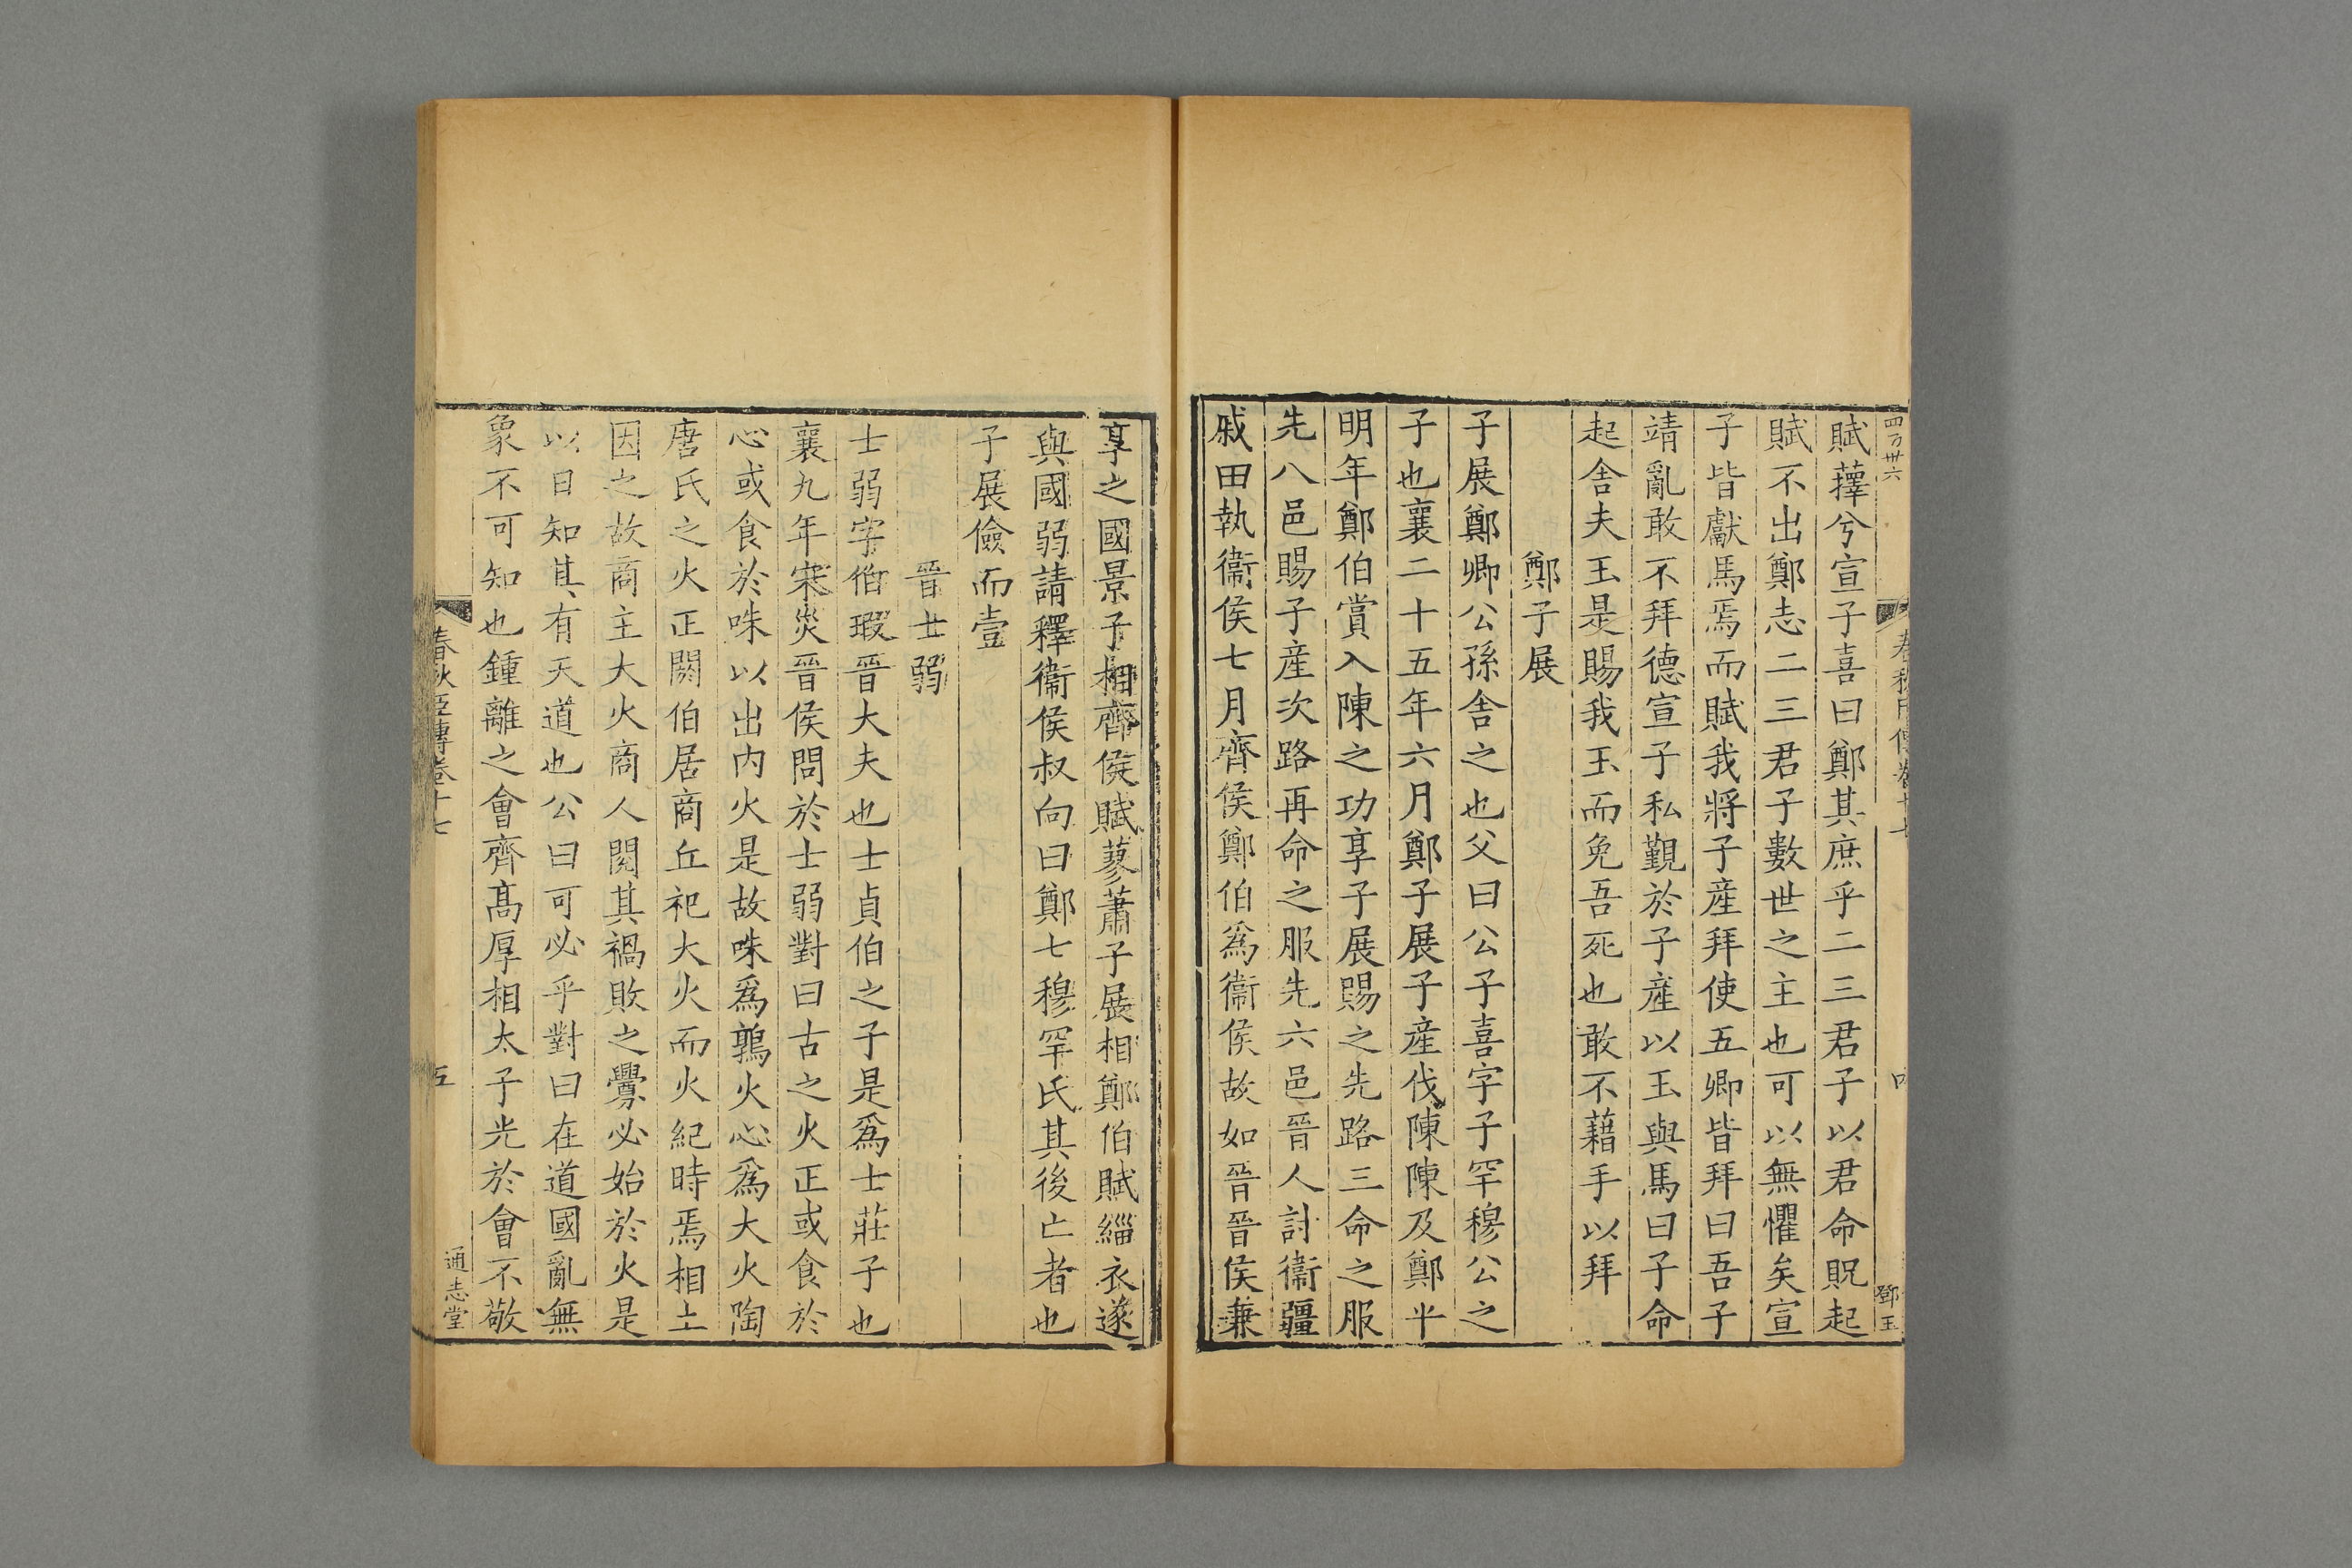 四百卅六
鄧玉
賦蘀兮宣子喜曰鄭其庶乎二三君子以君命貺起
賦不出鄭志二三君子數世之主也可以無懼矣宣
子皆獻馬焉而賦我將子產拜使五卿皆拜曰吾子
靖亂敢不拜德宣子私覲於子產以玉與馬曰子命
起舍夫玉是賜我玉而免吾死也敢不藉手以拜
鄭子展
子展鄭卿公孫舍之也父曰公子喜字子罕穆公之
子也襄二十五年六月鄭子展子產伐陳陳及鄭平
明年鄭伯賞入陳之功享子展賜之先路三命之服
先八邑賜子產次路再命之服先六邑晉人討衞疆
戚田執衞侯七月齊侯鄭伯爲衞侯故如晉晉侯兼
享之國景子相齊侯賦蓼蕭子展相鄭伯賦緇衣遂
與國弱請釋衞侯叔向曰鄭七穆罕氏其後亡者也
子展儉而壹
晉士弱
士弱字伯瑕晉大夫也士貞伯之子是爲士莊子也
襄九年宋災晉侯問於士弱對曰古之火正或食於
心或食於咮以出內火是故咮爲鶉火心爲大火陶
唐氏之火正閼伯居商丘祀大火而火紀時焉相土
因之故商主大火商人閱其禍敗之釁必始於火是
以日知其有天道也公曰可必乎對曰在道國亂無
象不可知也鍾離之會齊高厚相太子光於會不敬
春秋臣傳卷十七
五
通志堂